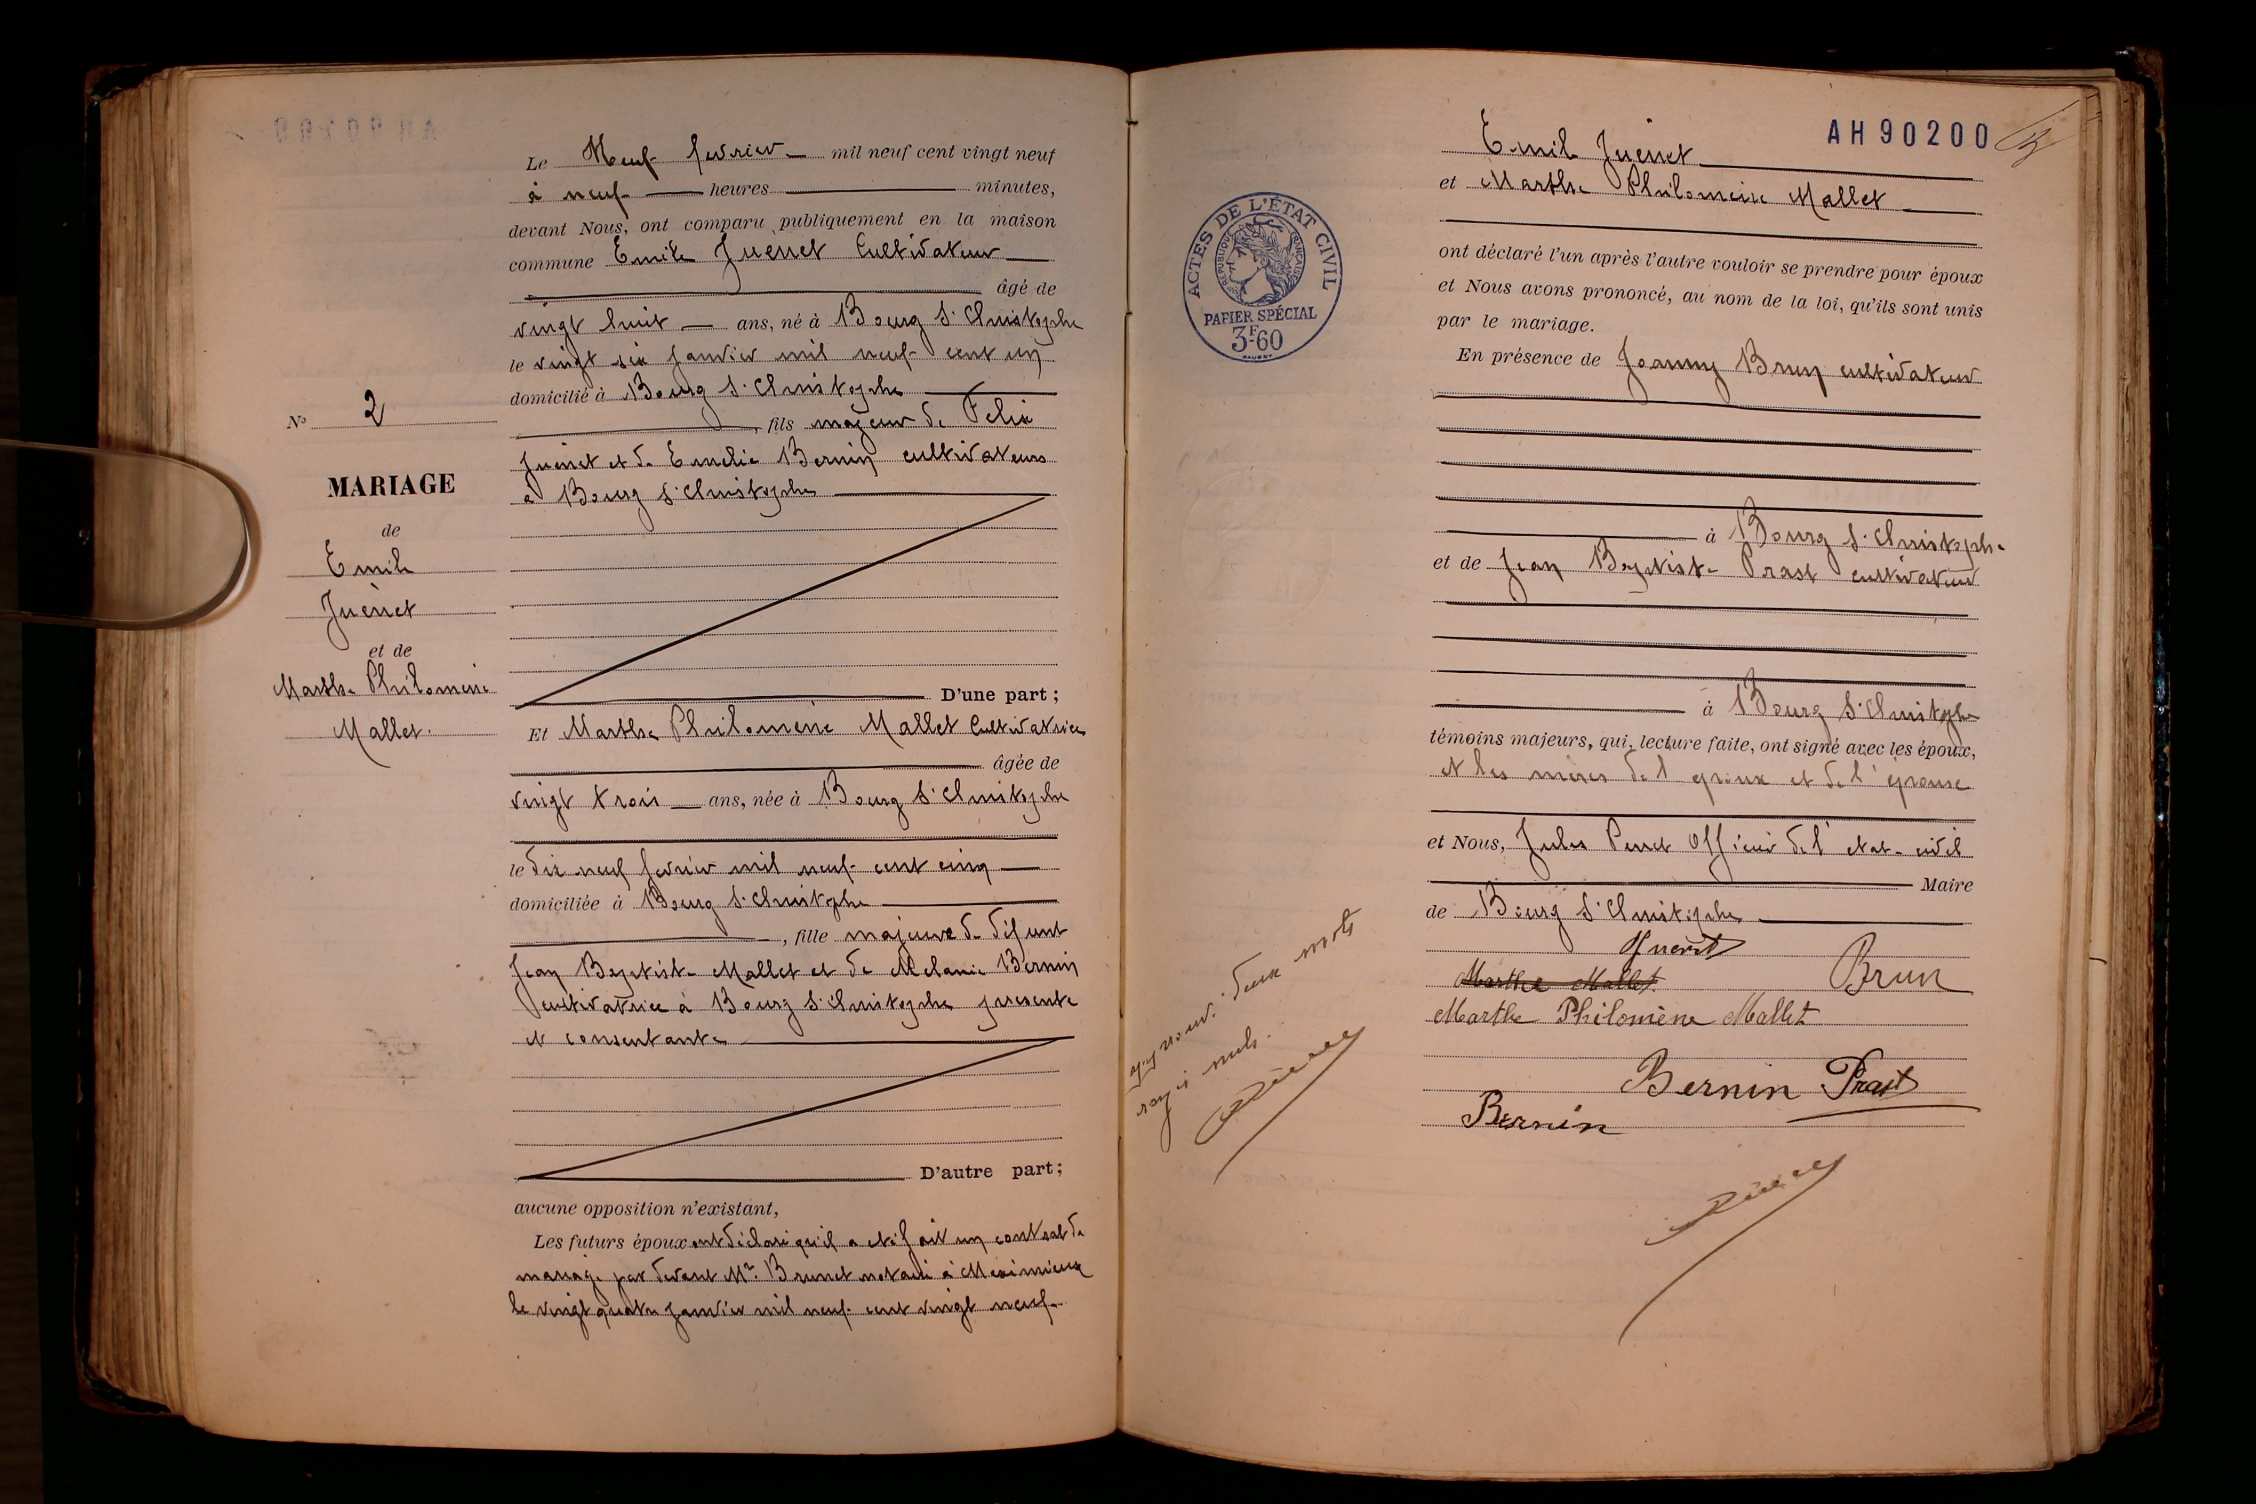 Le Neuf fevrier mil neuf cent vingt neuf
à neuf heures minutes,
devant Nous, ont comparu publiquement en la maison
commune Emile Juenet Cultivateur
âgé de
vingt huit ans, né à Bourg St Christophe
le vingt six janvier mil neuf cent un
domicilié à Bourg St Christophe
, fils majeur de Felix
Juenet et de Emelie Bernin cultivateurs
a Bourg St Christophe
No 2
MARIAGE
de
Emile
Juenet
et de
Marthe Philomene
Mallet.
D'une part ;
Et Marthe Philomene Mallet Cultivatrice
âgée de
vingt trois ans, née à Bourg St Christophe
le dix neuf fevrier mil neuf cent cinq
domiciliée à Bourg St Christophe
, fille majeure de défunt
Jean Baptiste Mallet et de Melanie Bernin
cultivatrice à Bourg St Christophe presente
et consentante
D'autre part ;
aucune opposition n'existant,
Les futurs époux ont déclaré qu'il a été fait un contrat de
mariage par devant Mr Brunet notaire à Meximieux
le vingt quatre janvier mil neuf cent vingt neuf
AH90200
Emile Juenet
et Marthe Philomene Mallet
ACTES DE L'ÉTAT CIVIL
RÉPUBLIQUE FRANÇAISE
PAPIER SPÉCIAL
3F60
ont déclaré l'un après l'autre vouloir se prendre pour époux
et Nous avons prononcé, au nom de la loi, qu'ils sont unis
par le mariage.
En présence de Joanny Brun cultivateur
à Bourg St Christophe
et de Jean Baptiste Prast cultivateur
à Bourg St Christophe
témoins majeurs, qui, lecture faite, ont signé avec les époux,
et les mères de l'epoux et de l'épouse
et Nous, Jules Perret Officier de l'etat civil
Maire
de Bourg St Christophe
Juenet
Marthe Mallet
Brun
Marthe Philomène Mallet
Bernin Prast
Bernin
deux mots
rayés nuls.